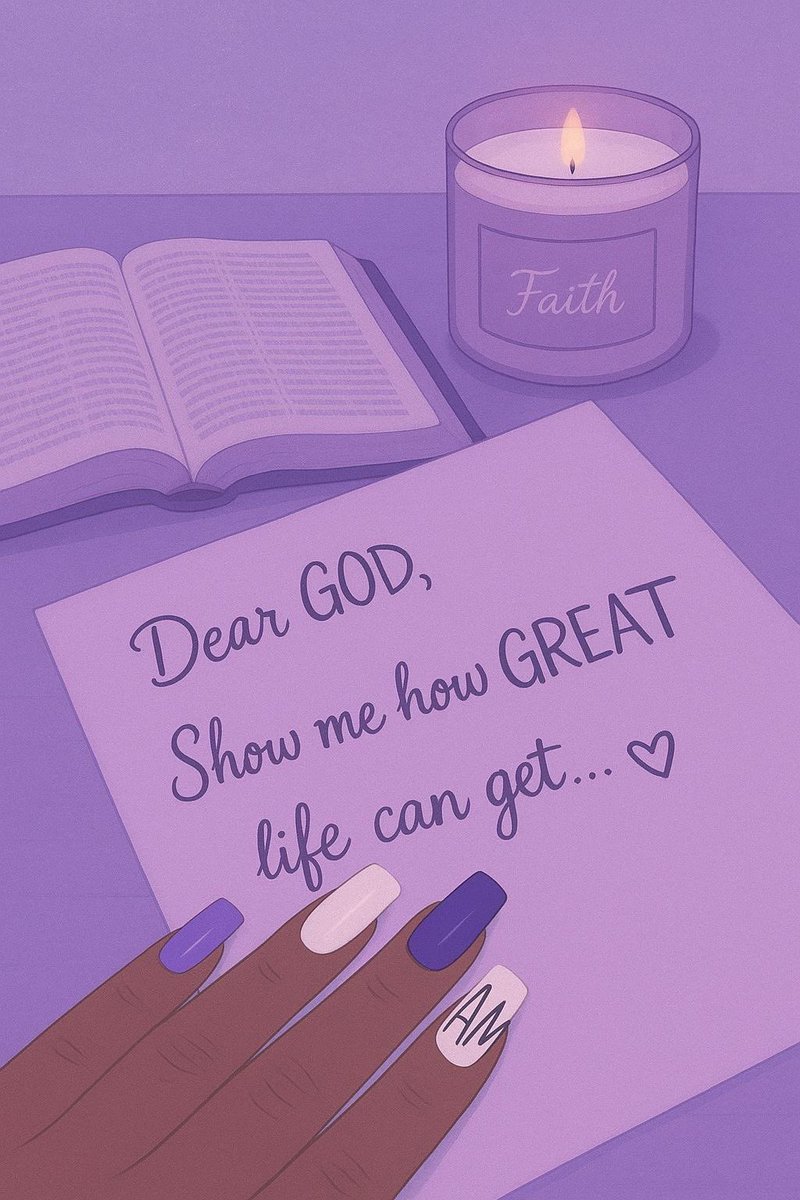 Faith
Dear GOD,
Show me how GREAT
life can get... ♡
AM